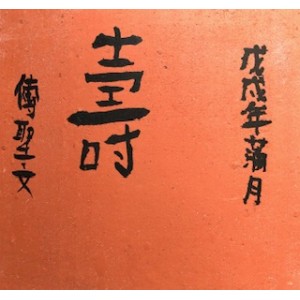 戊戌年蒲月
壽
傅聖文